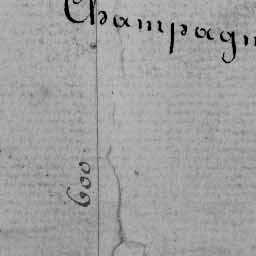 Champagn
600